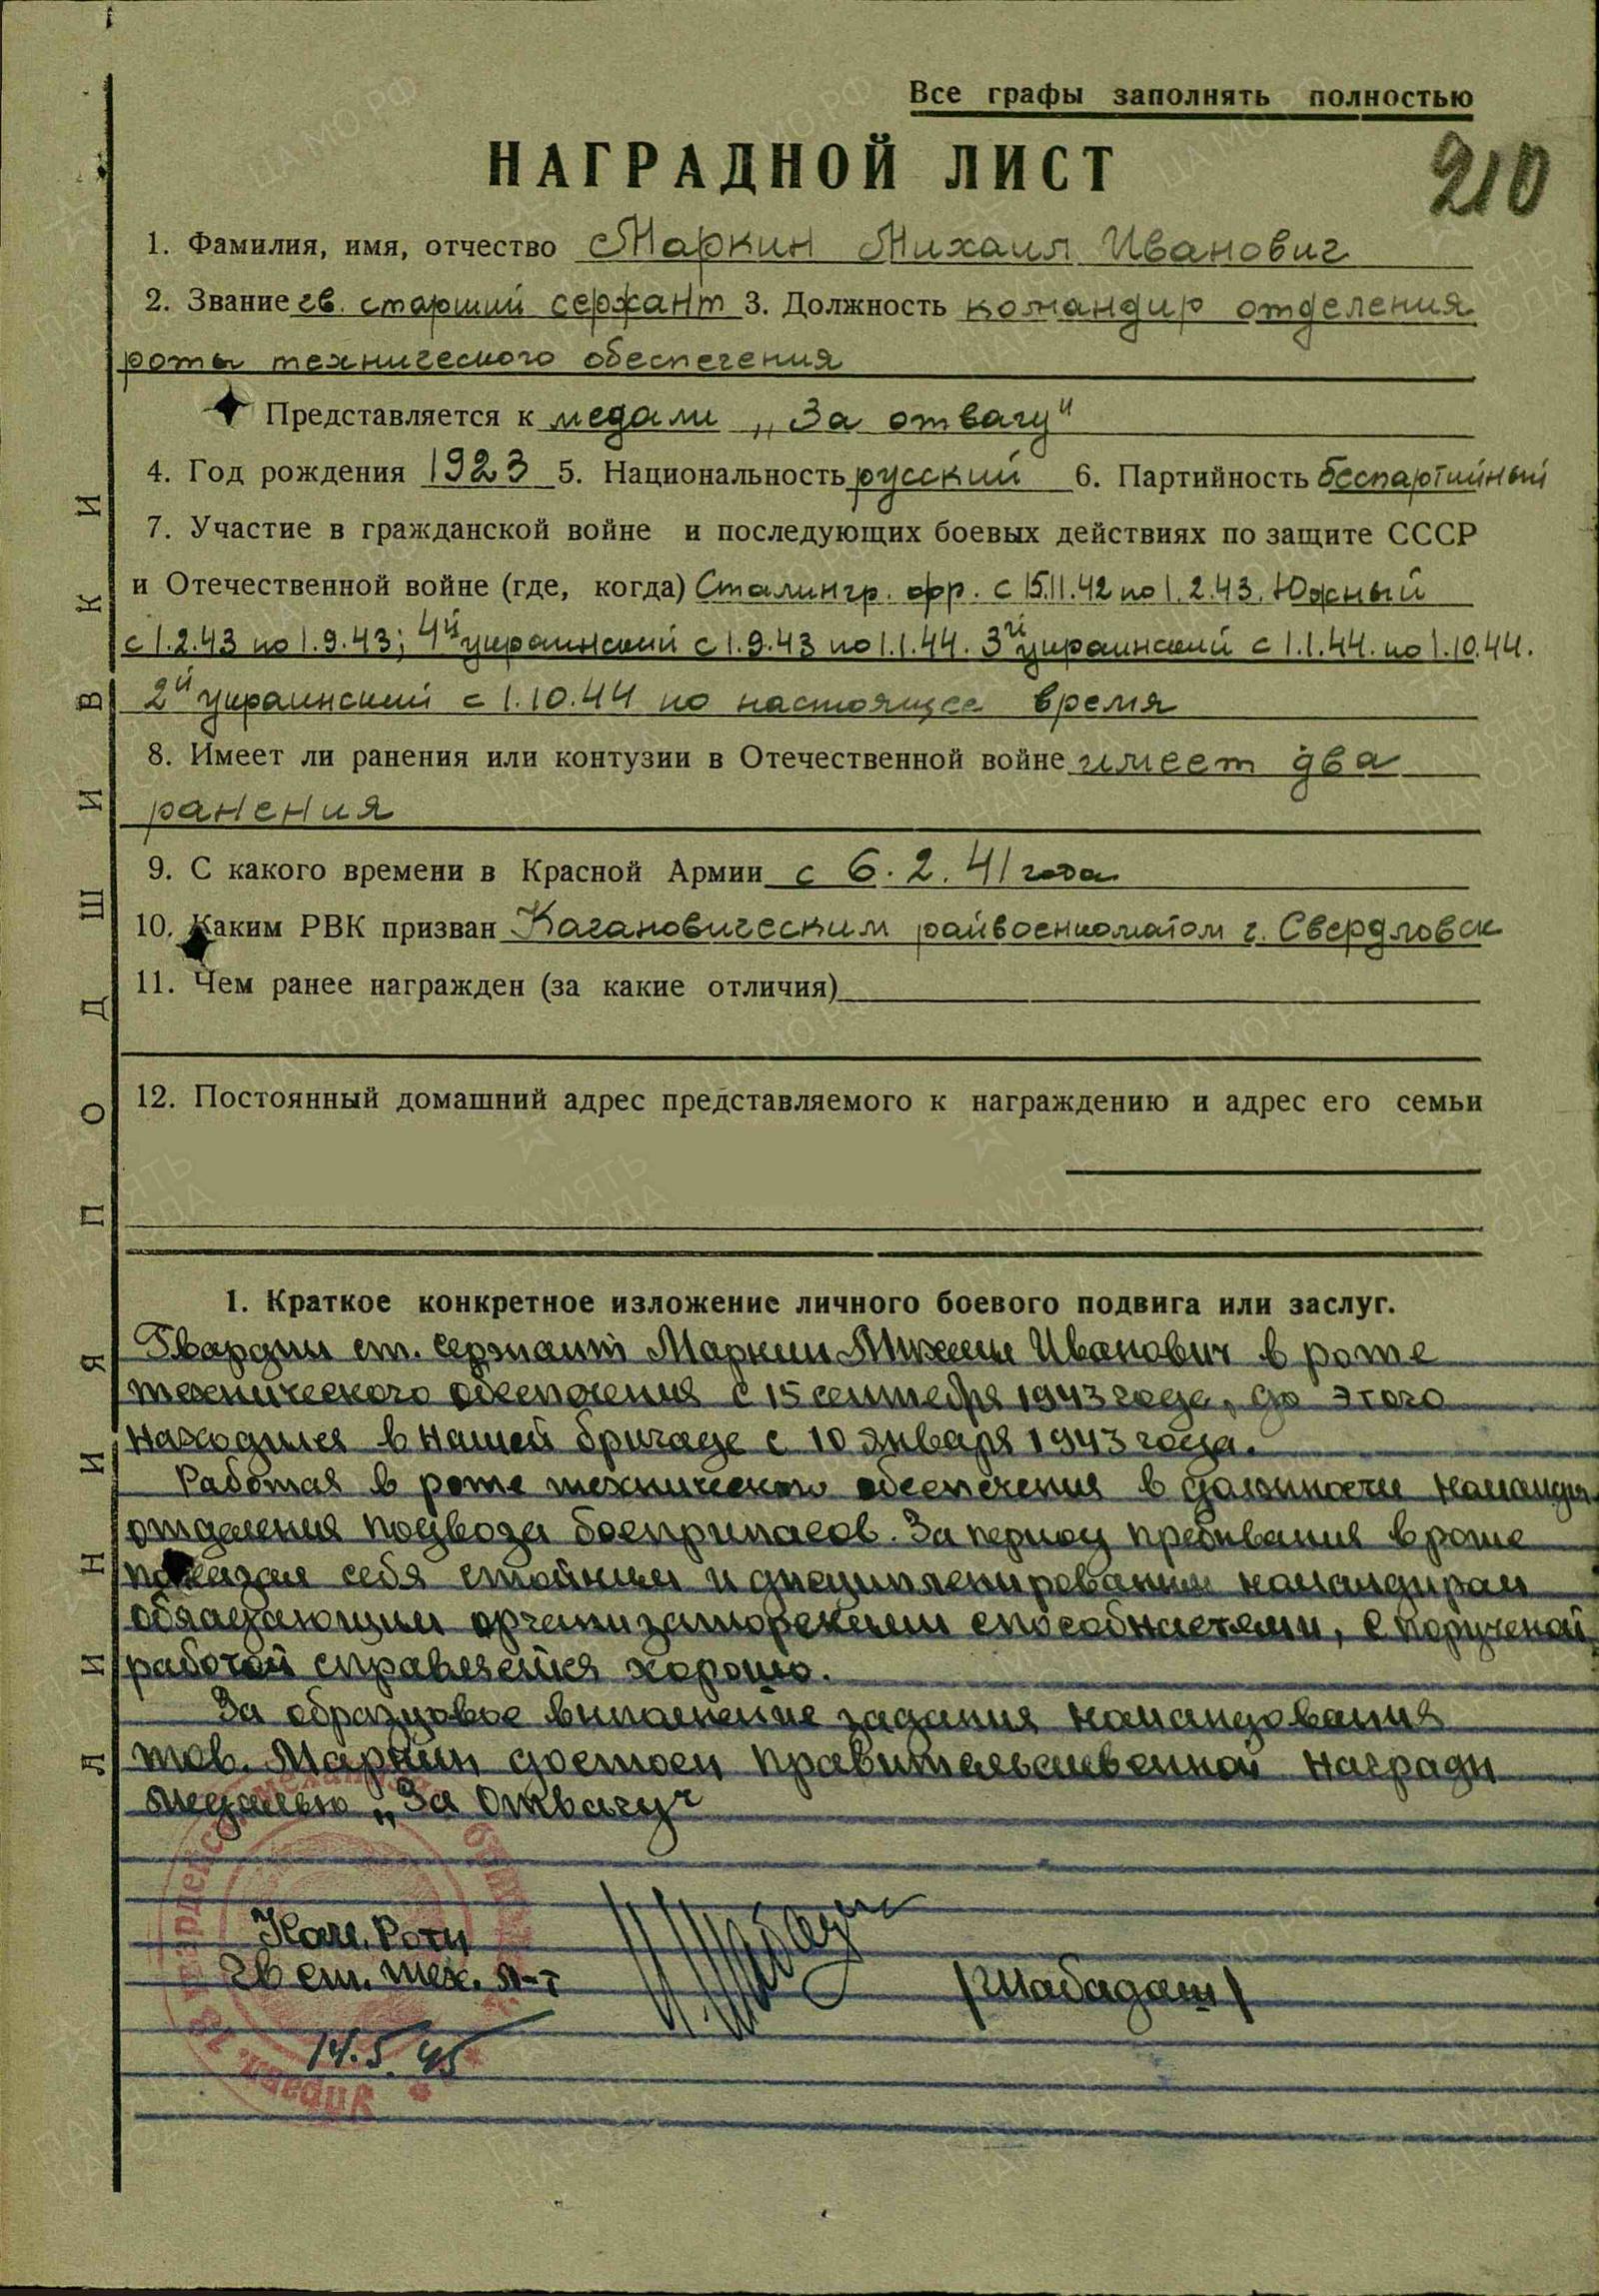 Все графы заполнять полностью
НАГРАДНОЙ ЛИСТ
210
1. Фамилия, имя, отчество Маркин Михаил Иванович
2. Звание гв. старший сержант 3. Должность командир отделения
роты технического обеспечения
Представляется к медали „За отвагу"
4. Год рождения 1923 5. Национальность русский 6. Партийность беспартийный
7. Участие в гражданской войне и последующих боевых действиях по защите СССР
и Отечественной войне (где, когда) Сталингр. фр. с 15.11.42 по 1.2.43. Южный
с 1.2.43 по 1.9.43; 4й украинский с 1.9.43 по 1.1.44. 3й украинский с 1.1.44. по 1.10.44.
2й украинский с 1.10.44 по настоящее время
8. Имеет ли ранения или контузии в Отечественной войне имеет два
ранения
9. С какого времени в Красной Армии с 6.2.41 года
10. Каким РВК призван Кагановическим райвоенкоматом г. Свердловск
11. Чем ранее награжден (за какие отличия)
12. Постоянный домашний адрес представляемого к награждению и адрес его семьи
1. Краткое конкретное изложение личного боевого подвига или заслуг.
Гвардии ст. сержант Маркин Михаил Иванович в роте
технического обеспечения с 15 сентября 1943 года, до этого
находился в нашей бригаде с 10 января 1943 года.
Работая в роте технического обеспечения в должности командира
отделения подвоза боеприпасов. За период пребывания в роте
показал себя стойким и дисциплинированым командиром
обладающим организаторскими способностями, с порученой
работой справляется хорошо.
За образцовое выполнение задания командования
тов. Маркин достоен правительственной награды
медалью „За Отвагу"
Ком. Роты
Гв ст. тех. л-т
/Шабадаш/
14.5.45
ЛИНИЯ ПОДШИВКИ